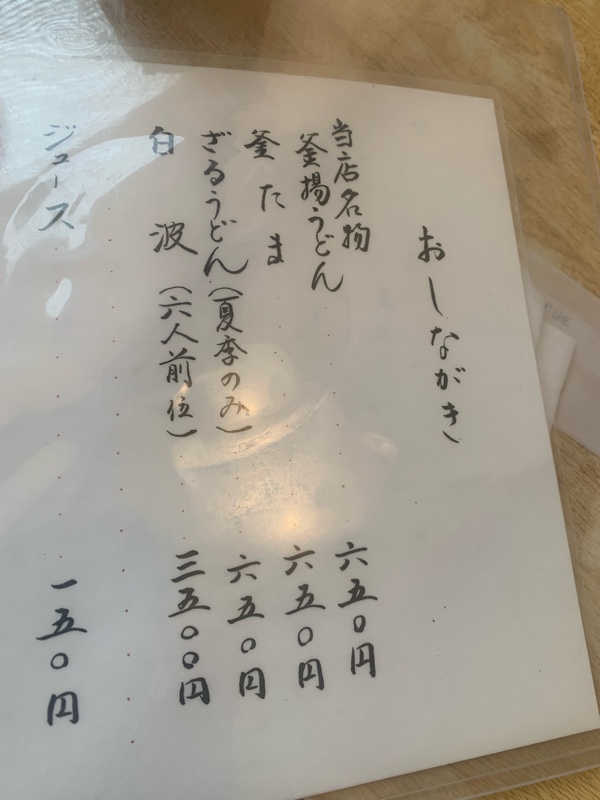 おしながき
当店名物
釜揚うどん 六五〇円
釜たま 六五〇円
ざるうどん（夏季のみ） 六五〇円
白波（六人前位） 三五〇〇円
ジュース 一五〇円